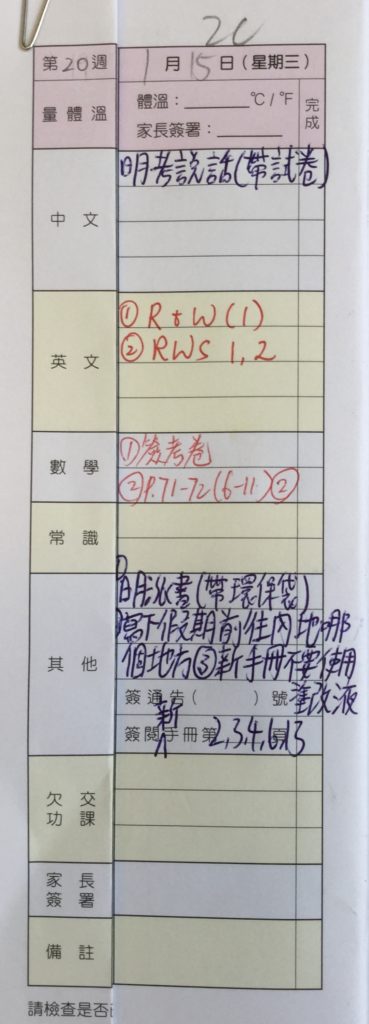 2C
第20週 1月15日(星期三)
量體溫 體溫：______℃/℉ 完成
家長簽署：______
中文 明考說話(帶試卷)
英文 ① R & W (1)
② RWS 1, 2
數學 ①簽考卷
②P.71-72(6-11)②
常識
其他 ①明派書(帶環保袋)
寫下假期前往內地哪
個地方③新手冊不要使用
簽通告( )號 塗改液
簽閱新手冊第2,3,4,6,13頁
欠交功課
家長簽署
備註
請檢查是否